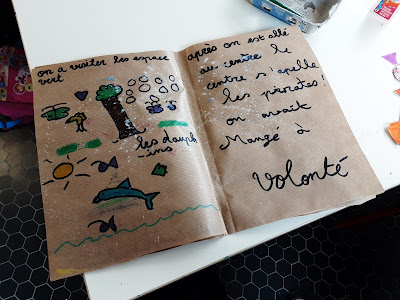 on a visiter les espace
vert
les dauph
-ins
après on est allé
au centre le
centre s'apelle
les pierrotes!
on avait
Mangé à
Volonté